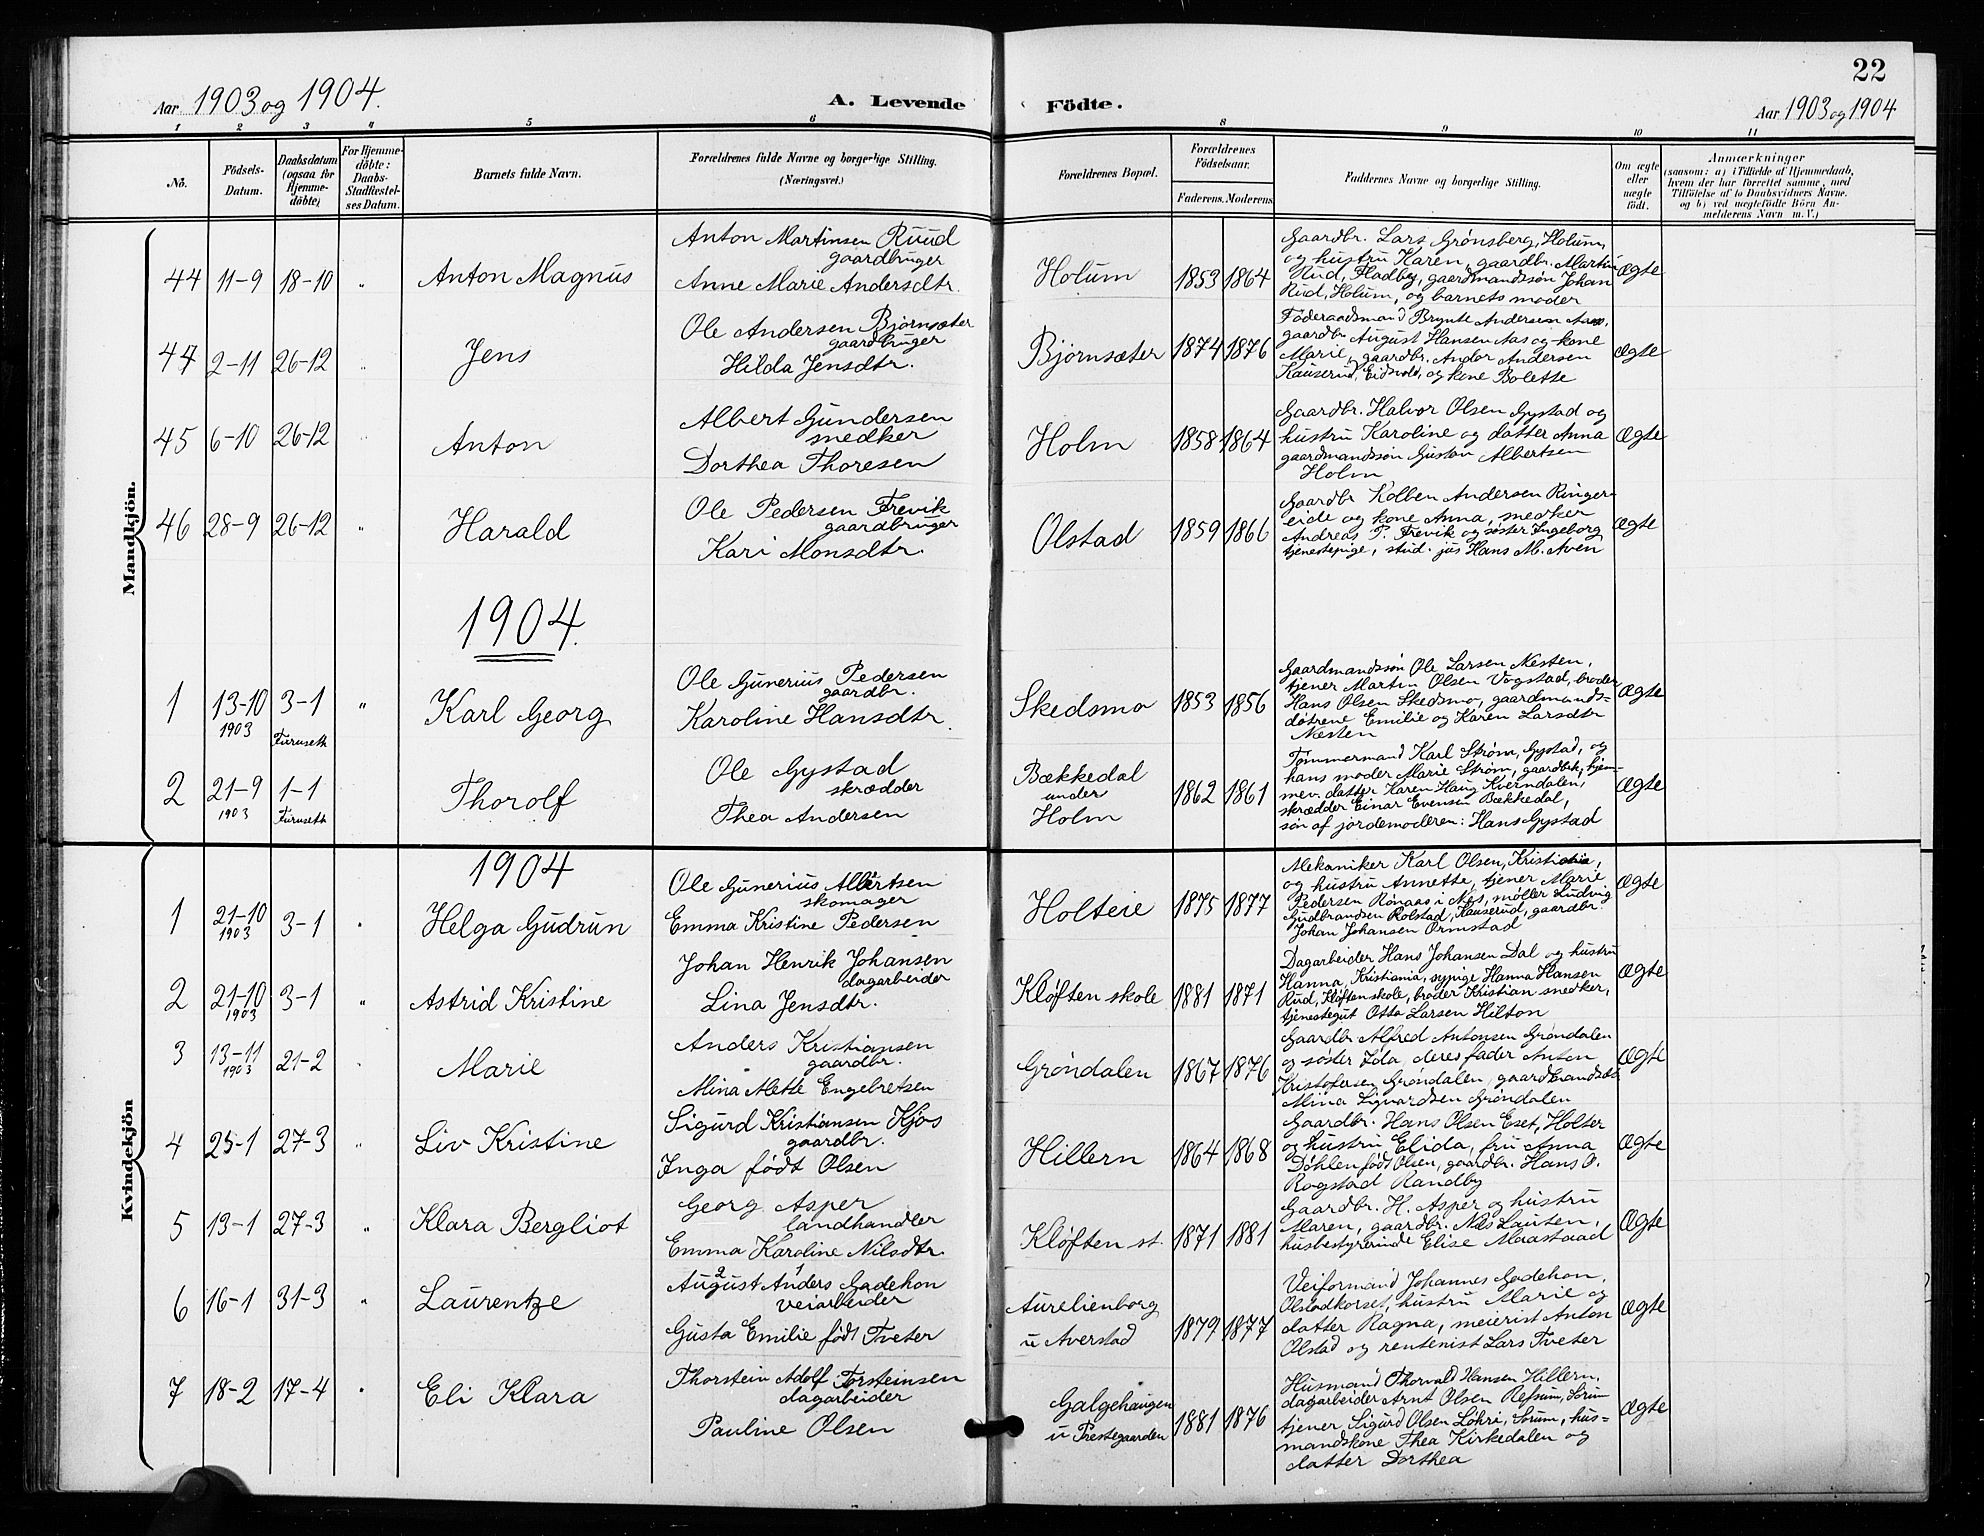 22
Aar 1903 og 1904.
A. Levende Födte.
Aar 1903 og 1904
1 2 3 4 5 6 8 9 10 11
No.
Födsels-Datum.
Daabsdatum (ogsaa for Hjemmedöbte)
For Hjemmedöbte: Daabs-Stadfæstelses Datum.
Barnets fulde Navn.
Forældrenes fulde Navne og borgerlige Stilling. (Næringsvei.)
Forældrenes Bopæl.
Forældrenes Födselsaar.
Faderens. Moderens
Faddernes Navne og borgerlige Stilling.
Om ægte eller uægte födt.
Anmærkninger
(saasom: a) i Tilfælde af Hjemmedaab,
hvem der har forrettet samme, med
Tilföielse af to Daabsvidners Navne.
og b) ved uægtefödte Börn Anmelderens Navn m. V.)
Mandkjön.
44 11-9 18-10 " Anton Magnus
Anton Martinsen Ruud
gaardbruger
Anne Marie Andersdtr.
Holum 1853 1864
Gaardbr. Lars Grønsberg, Holum,
og hustru Karen, gaardbr. Martin
Rud, Fladby, gaardmandssøn Johan
Rud, Holum, og barnets moder
Ægte
44 2-11 26-12 " Jens
Ole Andersen Bjørnsæter
gaardbruger
Hilda Jensdtr.
Bjørnsæter 1874 1876
Føderaadsmand Brynte Andersen Aas,
gaardbr August Hansen Aas og kone
Marie, gaardbr. Andor Andersen
Kauserud, Eidsvold, og kone Bolette
Ægte
45 6-10 26-12 " Anton
Albert Gundersen
snedker
Dorthea Thoresen
Holm 1858 1864
Gaardbr. Halvor Olsen Gystad og
hustru Karoline og datter Anna
gaardmandssøn Gustav Albertsen
Holm
Ægte
46 28-9 26-12 " Harald
Ole Pedersen Frevik
gaardbruger
Kari Monsdtr.
Olstad 1859 1866
Gaardbr Kolben Andersen Ringer-
eide og kone Anna, snedker
Andreas P. Frevik og søster Ingeborg
tjenestepige, stud. jus Hans M. Aven
Ægte
1904.
1 13-10 1903 3-1 Furuseth " Karl Georg
Ole Gunerius Pedersen
gaardbr.
Karoline Hansdtr.
Skedsmo 1853 1856
Gaardmandssøn Ole Larsen Nesten,
tjener Martin Olsen Vogstad, broder
Hans Olsen Skedsmo, gaardmands-
døtrene Emilie og Karen Larsdtr
Nesten
Ægte
2 21-9 1903 1-1 Furuseth Thorolf
Ole Gystad
skrædder
Thea Andersen
Bækkedal
under
Holm
1862 1861
Tømmermand Karl Strøm, Gystad, og
hans moder Marie Strøm, gaardbr.
datter Karen Haug Kverndalen,
skrædder Einar Evensen Bækkedal,
søn af jordemoderen: Hans Gystad
Ægte
Kvindekjön
1904
1 21-10 1903 3-1 " Helga Gudrun
Ole Gunerius Albertsen
skomager
Emma Kristine Pedersen
Holteie 1875 1877
Mekaniker Karl Olsen, Kristiania,
og hustru Annette, tjener Marie
Pedersen Rønaas i Nes, møller Ludvig
Gudbrandsen Rolstad, Kauserud, gaardbr.
Johan Johansen Ormstad
Ægte
2 21-10 1903 3-1 " Astrid Kristine
Johan Henrik Johansen
dagarbeider
Lina Jensdtr.
Kløften skole 1881 1871
Dagarbeider Hans Johansen Dal og hustru
Hanna, Kristiania, sypige Hanna Hansen
Rud, Kløften skole, broder Kristian snedker,
tjenestegut Otto Larsen Hilton
Ægte
3 13-11 1903 21-2 " Marie
Anders Kristiansen
gaardbr.
Mina Mette Engebretsen
Grøndalen 1867 1876
Gaardbr Alfred Antonsen Grøndalen
og søster Ida, deres fader Anton
Kristofersen Grøndalen,
Mina Sigvardsen Grøndalen
Ægte
4 25-1 27-3 " Liv Kristine
Sigurd Kristiansen Kjos
gaardbr.
Inga født Olsen
Hillern 1864 1868
Gaardbr. Hans Olsen Eset, Holter
og hustru Elida, fru Anna
Døhlen født Olsen, gaardbr. Hans O.
Rogstad Randby
Ægte
5 13-1 27-3 " Klara Bergliot
Georg Asper
landhandler
Emma Karoline Nilsdtr.
Kløften st. 1871 1881
Gaardbr. H. Asper og hustru
Maren, gaardbr. Nils Lauten,
husbestyrerinde Elise Maastaad
Ægte
6 16-1 31-3 " Laurentze
2 1
August Anders Gadehon
veiarbeider
Gusta Emilie født Tveter
Aurelienborg
u Averstad
1879 1877
Veiformand Johannes Gadehon,
Olstadkorset, hustru Marie og
datter Ragna, meierist Anton
Olstad og rentenist Lars Tveter
Ægte
7 18-2 17-4 " Eli Klara
Thorstein Adolf Torsteinsen
dagarbeider
Pauline Olsen
Galgehaugen
u Prestegaarden
1881 1876
Husmand Thorvald Hansen Hillern,
dagarbeider Arnt Olsen Refsum, Sørum
tjener Sigurd Olsen Løhri, Sørum, hus-
mandskone Thea Kirkedalen og
datter Dorthea
Ægte